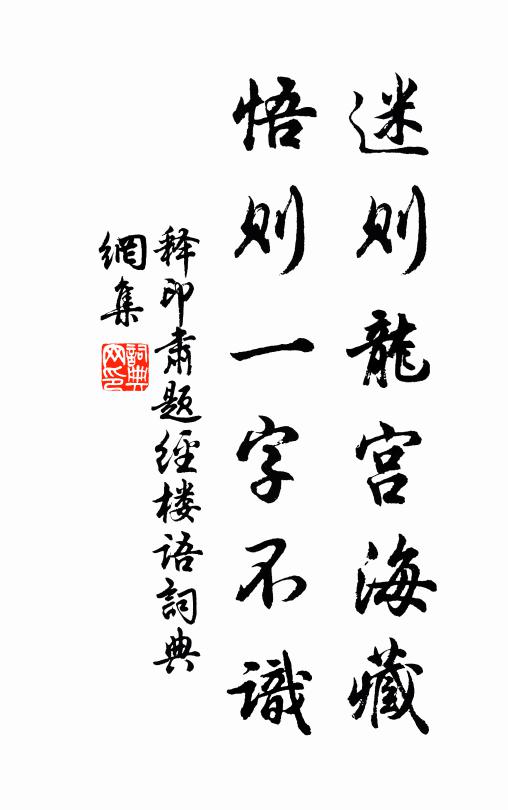 迷则龍宫海藏
悟则一字不識
释印肃题經楼语詞典
網集
詞典网印